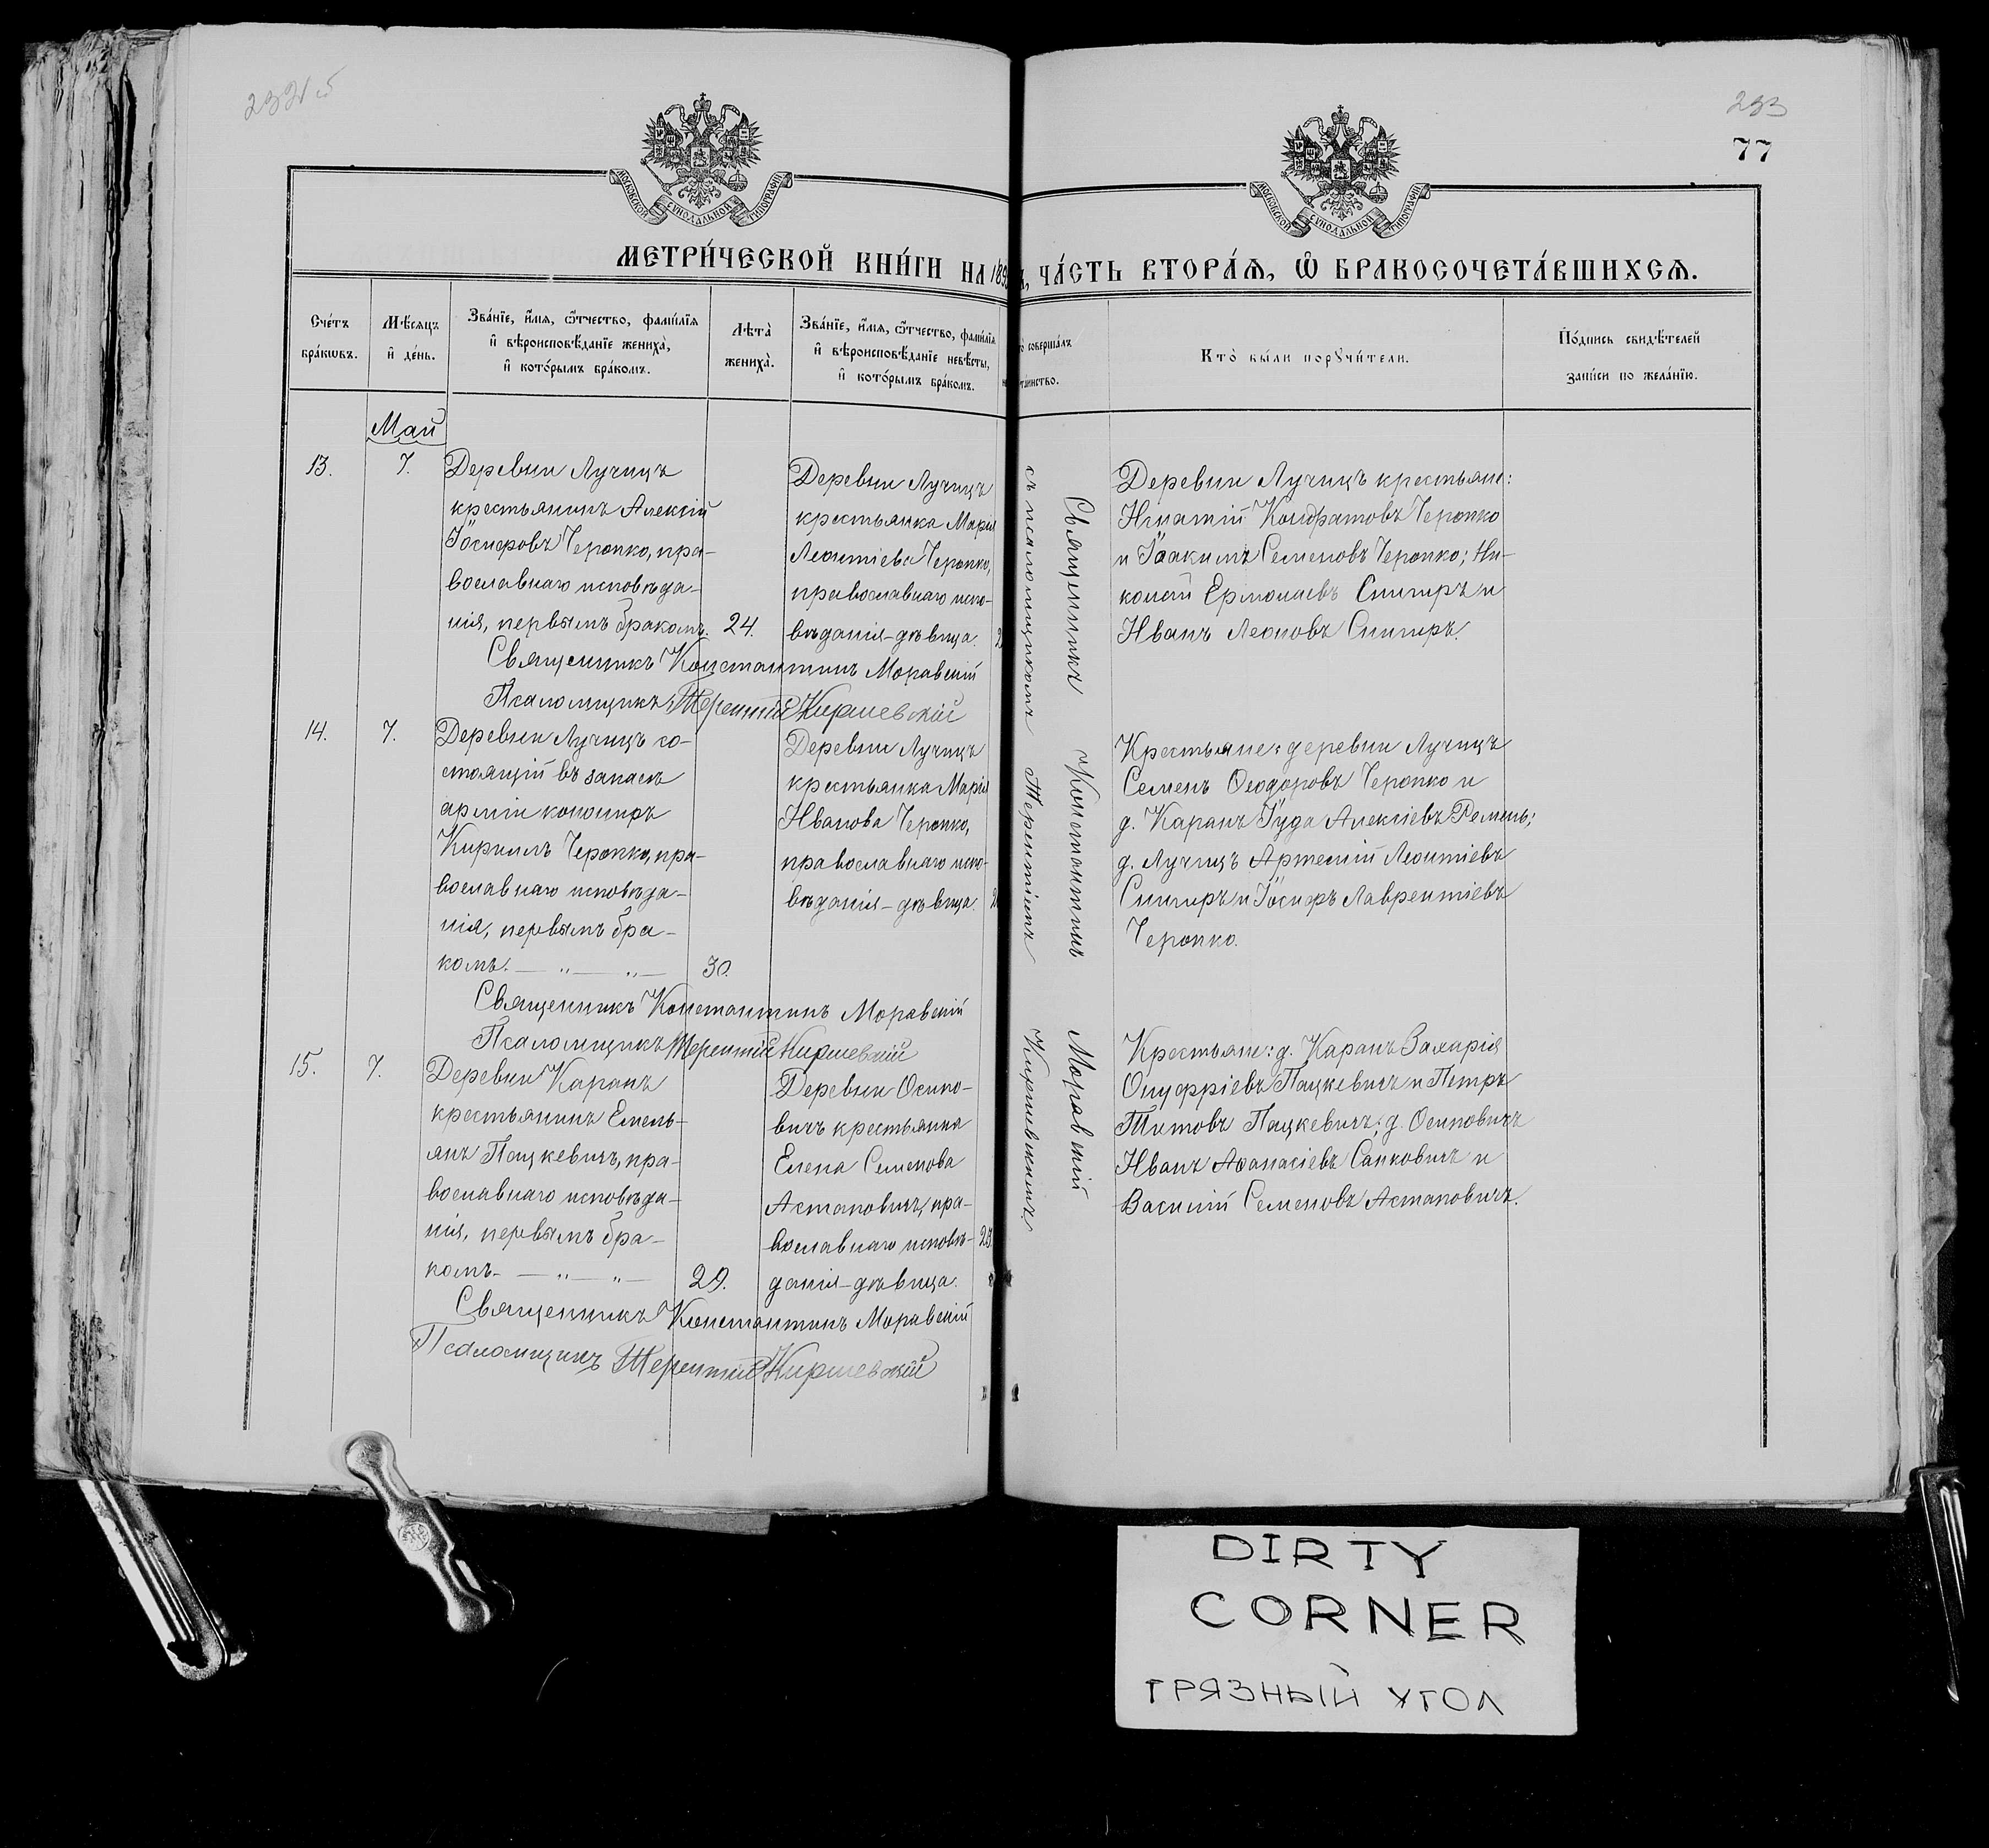 233
77
МОСКОВСКОЙ СѴНОДАЛЬНОЙ ТИПОГРАФІИ
МОСКОВСКОЙ СѴНОДАЛЬНОЙ ТИПОГРАФІИ
МЕТРИ́ЧЕСКОЙ КНИ́ГИ НА 189
ЧА́СТЬ ВТОРА́Ѧ, Ѽ БРАКОСОЧЕТА́ВШИХСѦ.
Сче́тъ
бра́кѡвъ.
Мѣ́сѧцъ
и҆ де́нь.
Зва́нїе, и҆́мѧ, ѻ҆́тчество, фами́лїѧ
и҆ вѣроисповѣ́данїе жениха̀,
и҆ кото́рымъ бра́комъ.
Лѣта̀
жениха̀.
Зва́нїе, и҆́мѧ, ѻ҆́тчество, фами́лїѧ
и҆ вѣроисповѣ́данїе невѣ́сты,
и҆ кото́рымъ бра́комъ.
соверша́лъ
та́инство.
Кто̀ бы́ли порꙋчи́тели.
По́дпись свидѣ́телей
за́писи по жела́нїю.
Май
13.
7.
Деревни Лучицъ
крестьянинъ Алексій
Іосифовъ Черопко, пра-
вославнаго исповѣда-
нія, первымъ бракомъ.
24.
Деревни Лучицъ
крестьянка Марія
Леонтіева Черопко,
православнаго испо-
вѣданія-дѣвица.
Священникъ Константинъ Моравскій
Псаломщикъ Терентій Киршевскій
Деревни Лучицъ крестьяне:
Игнатій Кондратовъ Черопко
и Іоакимъ Семеновъ Черопко; Ни-
колай Ермолаевъ Снигиръ и
Иванъ Леоновъ Снигиръ.
14.
7.
Деревни Лучицъ со-
стоящій въ запасѣ
арміи конониръ
Кириллъ Черопко, пра-
вославнаго исповѣда-
нія, первымъ бра-
комъ. — „ — „ —
30.
Деревни Лучицъ
крестьянка Марія
Иванова Черопко,
православнаго испо-
вѣданія-дѣвица.
Священникъ Константинъ Моравскій
Псаломщикъ Терентій Киршевскій
Крестьяне: деревни Лучицъ
Семенъ Ѳеодоровъ Черопко и
д. Каранъ Іуда Алексіевъ Ремень;
д. Лучицъ Артемій Леонтіевъ
Снигиръ и Іосифъ Лаврентіевъ
Черопко.
15.
7.
Деревни Каранъ
крестьянинъ Емель-
янъ Пацкевичъ, пра-
вославнаго исповѣда-
нія, первымъ бра-
комъ. — „ — „ —
29.
Деревни Осипо-
вичъ крестьянка
Елена Семенова
Астаповичъ, пра-
вославнаго исповѣ-
данія-дѣвица.
Священникъ Константинъ Моравскій
Псаломщикъ Терентій Киршевскій
Крестьяне: д. Каранъ Захарія
Онуфріевъ Пацкевичъ и Петръ
Титовъ Пацкевичъ; д. Осиповичъ
Иванъ Аѳанасіевъ Санковичъ и
Василій Семеновъ Астаповичъ.
Священникъ Константинъ Моравскій
съ псаломщикомъ Терентіемъ Киршевскимъ.
DIRTY
CORNER
ГРЯЗНЫЙ УГОЛ